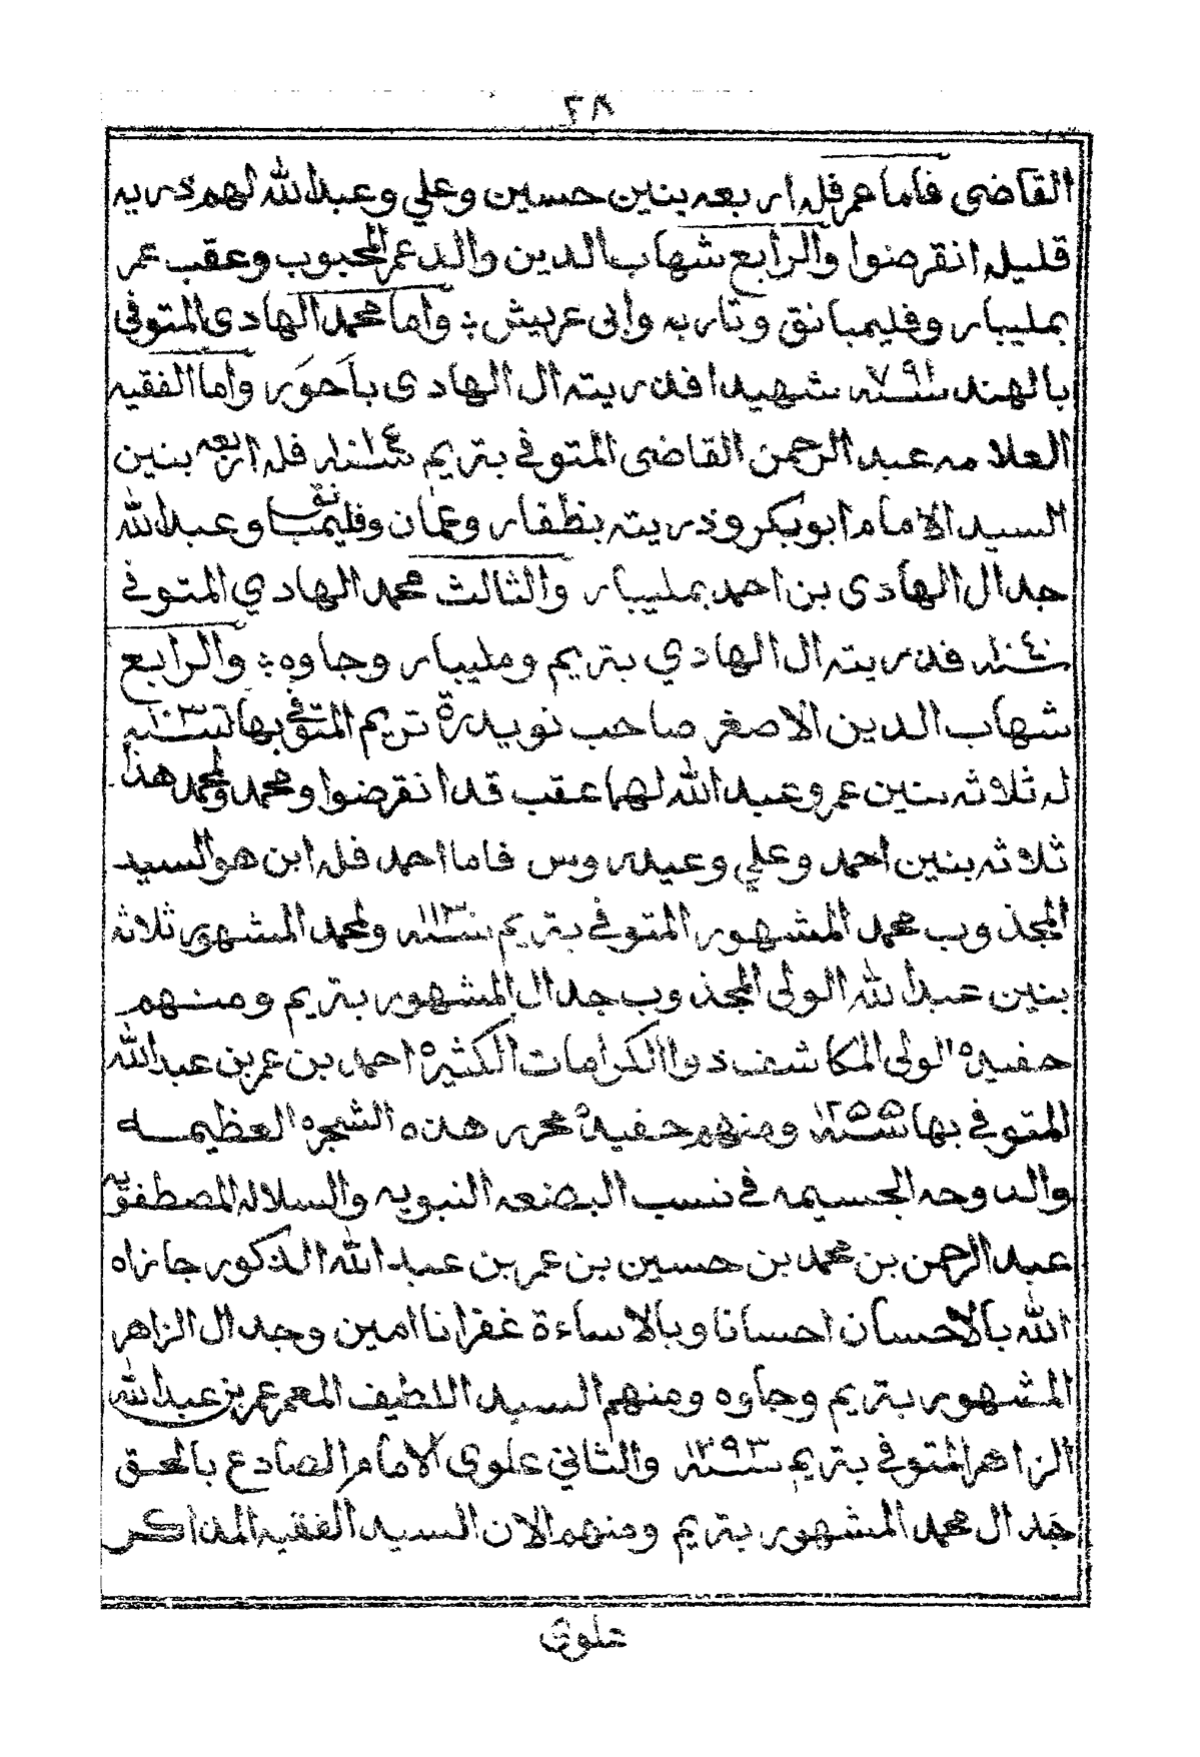 ٢٨
القاضى فاما عمر فله اربعه بنين حسين وعلي وعبدالله لهم ذريه
قليله انقرضوا والرابع شهاب الدين والد عمر المحبوب وعقب عمر
بمليبار وفليمبانق وتاربه وابى عريش ؛ واما محمد الهادى المتوفى
بالهند سنه ٧٩١ شهيدا فذريته ال الهادى بأحور واما الفقيه
العلامه عبد الرحمن القاضى المتوفي بتريم سنه فله اربعه بنين
السيد الامام ابوبكر وذريته بظفار وعمان وفليمبانق وعبدالله
جد ال الهادى بن احمد بمليبار والثالث محمد الهادي المتوفي
سنه فذريته ال الهادي بتريم ومليبار وجاوه ؛ والرابع
شهاب الدين الاصغر صاحب نويدرة تريم المتوفي بها سنه ١٠٣٦
له ثلاثه بنين عمر وعبدالله لهما عقب قد انقرضوا ومحمد ولمحمد هذا
ثلاثه بنين احمد وعلي وعيدروس فاما احمد فله ابن هو السيد
المجذوب محمد المشهور المتوفي بتريم سنه ١١٣٠ ولمحمد المشهور ثلاثة
بنين عبدالله الولى المجذوب جد ال المشهور بتريم ومنهم
حفيده الولى المكاشف ذوا الكرامات الكثيره احمد بن عمر بن عبدالله
المتوفي بها سنه ١٢٥٥ ومنهم حفيده محرر هذه الشجره العظيمه
والدوحه الجسيمه في نسب البضعه النبويه والسلاله المصطفويه
عبد الرحمن بن محمد بن حسين بن عمر بن عبد الله المذكور جازاه
الله بالاحسان احسانا وبالاساءة غفرانا امين وجد ال الزاهر
المشهور بتريم وجاوه ومنهم السيد اللطيف المعمر عمر بن عبدالله
الزاهر المتوفي بتريم سنه ١٢٩٣ والثاني علوى الامام الصادع بالحق
جد ال محمد المشهور بتريم ومنهم الان السيد الفقيه المذاكر
علوي